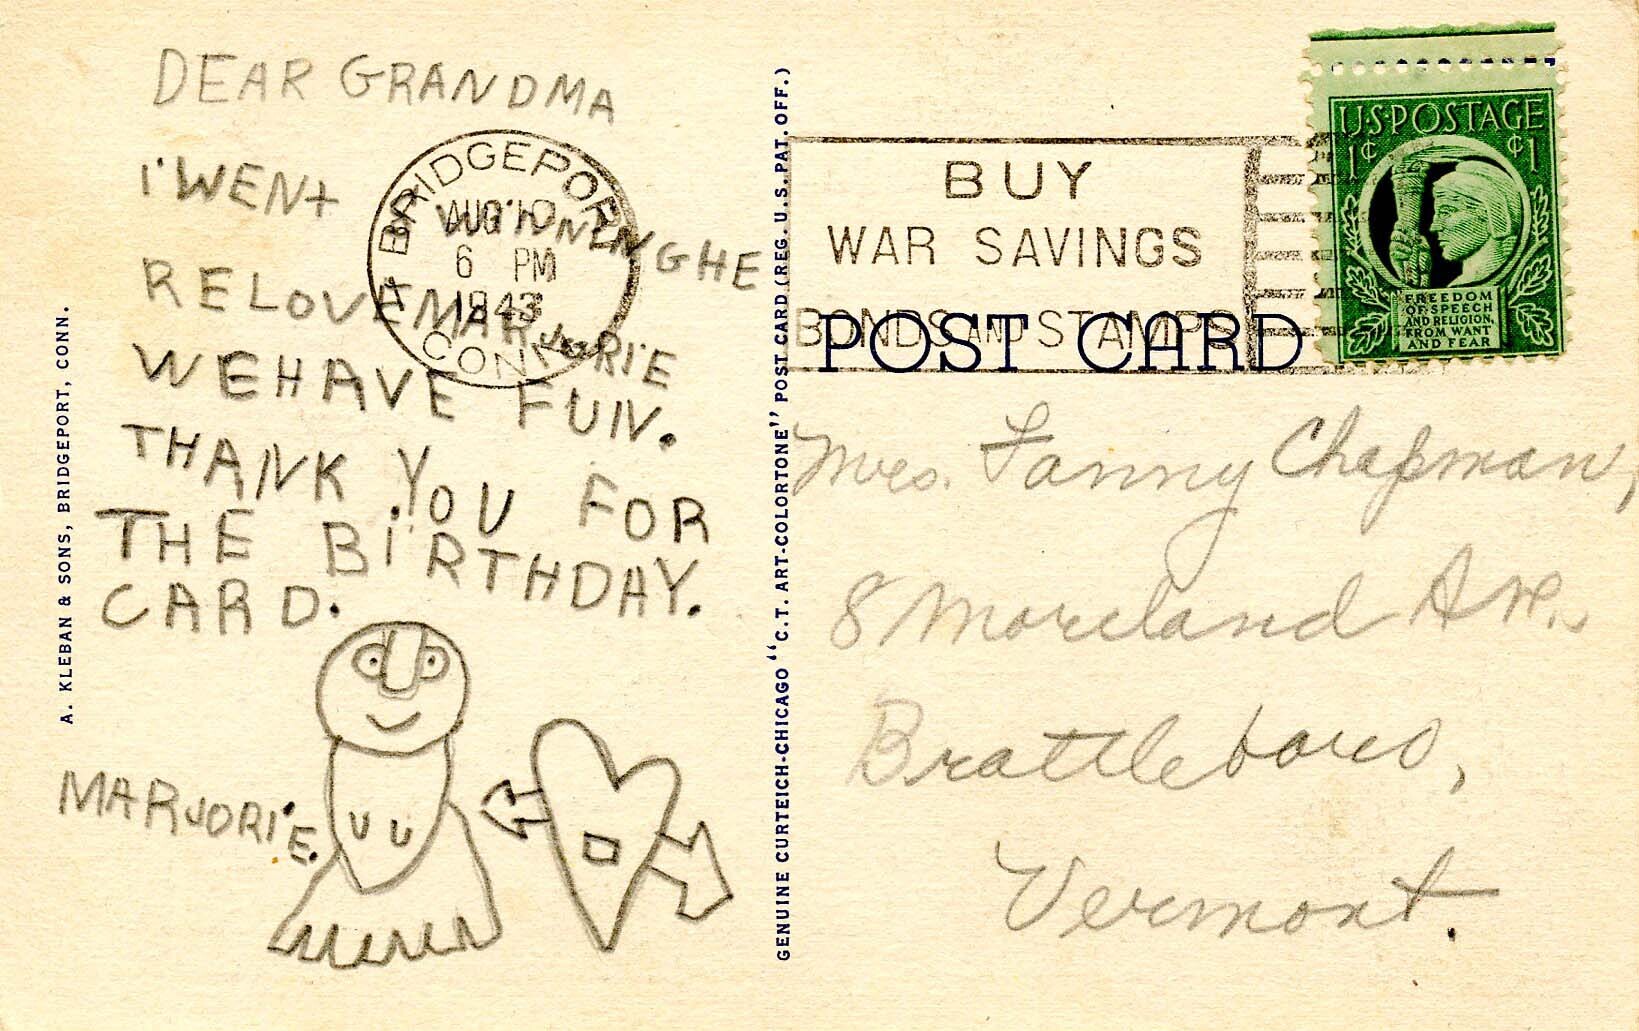 DEAR GRANDMA
I WENT
GHE
RE LOVE MARJORIE
WE HAVE FUN.
THANK YOU FOR
THE BIRTHDAY.
CARD.
MARJORIE.
A. KLEBAN & SONS, BRIDGEPORT, CONN.
BRIDGEPORT
AUG 10
6 PM
1943
CONN.
GENUINE CURTEICH-CHICAGO "C.T. ART-COLORTONE" POST CARD (REG. U.S. PAT. OFF.)
BUY
WAR SAVINGS
BONDS AND STAMPS
POST CARD
U.S. POSTAGE
1¢ ¢1
FREEDOM
OF SPEECH
AND RELIGION,
FROM WANT
AND FEAR
Mrs. Fanny Chapman,
8 Moreland Ave.
Brattleboro,
Vermont.